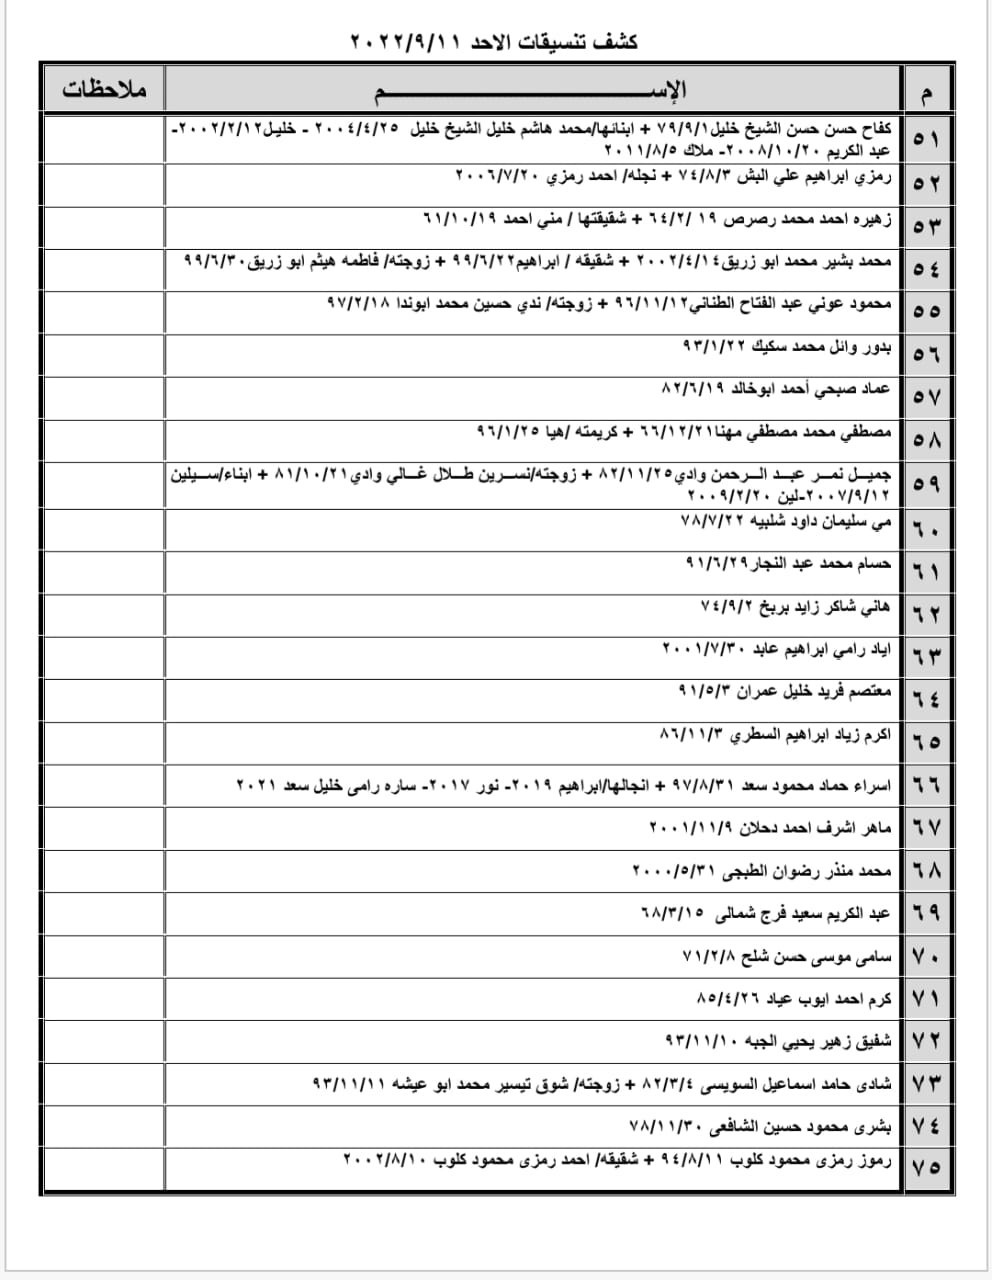 كشف تنسيقات الاحد ٢٠٢٢/٩/١١
م الإســـــــــم ملاحظات
٥١ كفاح حسن حسن الشيخ خليل٧٩/٩/١ + ابنائها/محمد هاشم خليل الشيخ خليل ٢٠٠٤/٤/٢٥ - خليل٢٠٠٢/٢/١٢-
عبد الكريم ٢٠٠٨/١٠/٢٠- ملاك ٢٠١١/٨/٥
٥٢ رمزي ابراهيم علي البش ٧٤/٨/٣ + نجله/ احمد رمزي ٢٠٠٦/٧/٢٠
٥٣ زهيره احمد محمد رصرص ١٩ /٦٤/٢ + شقيقتها / مني احمد ٦١/١٠/١٩
٥٤ محمد بشير محمد ابو زريق٢٠٠٢/٤/١٤ + شقيقه / ابراهيم٩٩/٦/٢٢ + زوجته/ فاطمه هيثم ابو زريق٩٩/٦/٣٠
٥٥ محمود عوني عبد الفتاح الطناني٩٦/١١/١٢ + زوجته/ ندي حسين محمد ابوندا ٩٧/٢/١٨
٥٦ بدور وائل محمد سكيك ٩٣/١/٢٢
٥٧ عماد صبحي أحمد ابوخالد ٨٢/٦/١٩
٥٨ مصطفي محمد مصطفي مهنا٦٦/١٢/٢١ + كريمته /هيا ٩٦/١/٢٥
٥٩ جميــل نمــر عبــد الــرحمن وادي٨٢/١١/٢٥ + زوجته/نســرين طــلال غــالي وادي٨١/١٠/٢١ + ابناء/ســيلين
٢٠٠٧/٩/١٢-لين ٢٠٠٩/٢/٢٠
٦٠ مي سليمان داود شلبيه ٧٨/٧/٢٢
٦١ حسام محمد عبد النجار٩١/٦/٢٩
٦٢ هاني شاكر زايد بربخ ٧٤/٩/٢
٦٣ اياد رامي ابراهيم عابد ٢٠٠١/٧/٣٠
٦٤ معتصم فريد خليل عمران ٩١/٥/٣
٦٥ اكرم زياد ابراهيم السطري ٨٦/١١/٣
٦٦ اسراء حماد محمود سعد ٩٧/٨/٣١ + انجالها/ابراهيم ٢٠١٩- نور ٢٠١٧- ساره رامى خليل سعد ٢٠٢١
٦٧ ماهر اشرف احمد دحلان ٢٠٠١/١١/٩
٦٨ محمد منذر رضوان الطبجى ٢٠٠٠/٥/٣١
٦٩ عبد الكريم سعيد فرج شمالى ٦٨/٣/١٥
٧٠ سامى موسى حسن شلح ٧١/٢/٨
٧١ كرم احمد ايوب عياد ٨٥/٤/٢٦
٧٢ شفيق زهير يحيي الجبه ٩٣/١١/١٠
٧٣ شادى حامد اسماعيل السويسى ٨٢/٣/٤ + زوجته/ شوق تيسير محمد ابو عيشه ٩٣/١١/١١
٧٤ بشرى محمود حسين الشافعى ٧٨/١١/٣٠
٧٥ رموز رمزى محمود كلوب ٩٤/٨/١١ + شقيقه/ احمد رمزى محمود كلوب ٢٠٠٢/٨/١٠